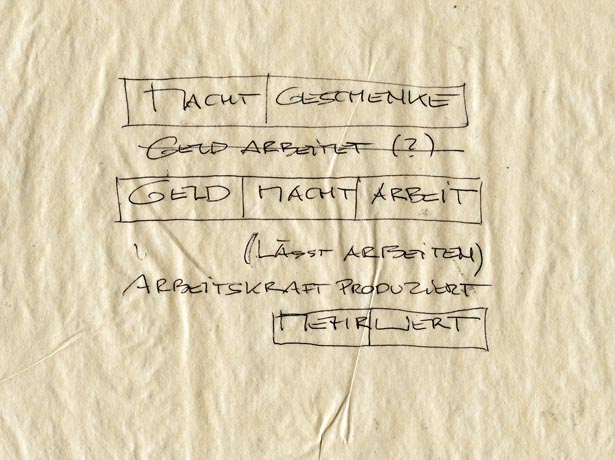 MACHT GESCHENKE
GELD ARBEITET (?)
GELD MACHT ARBEIT
(LÄSST ARBEITEN)
ARBEITSKRAFT PRODUZIERT
MEHR WERT